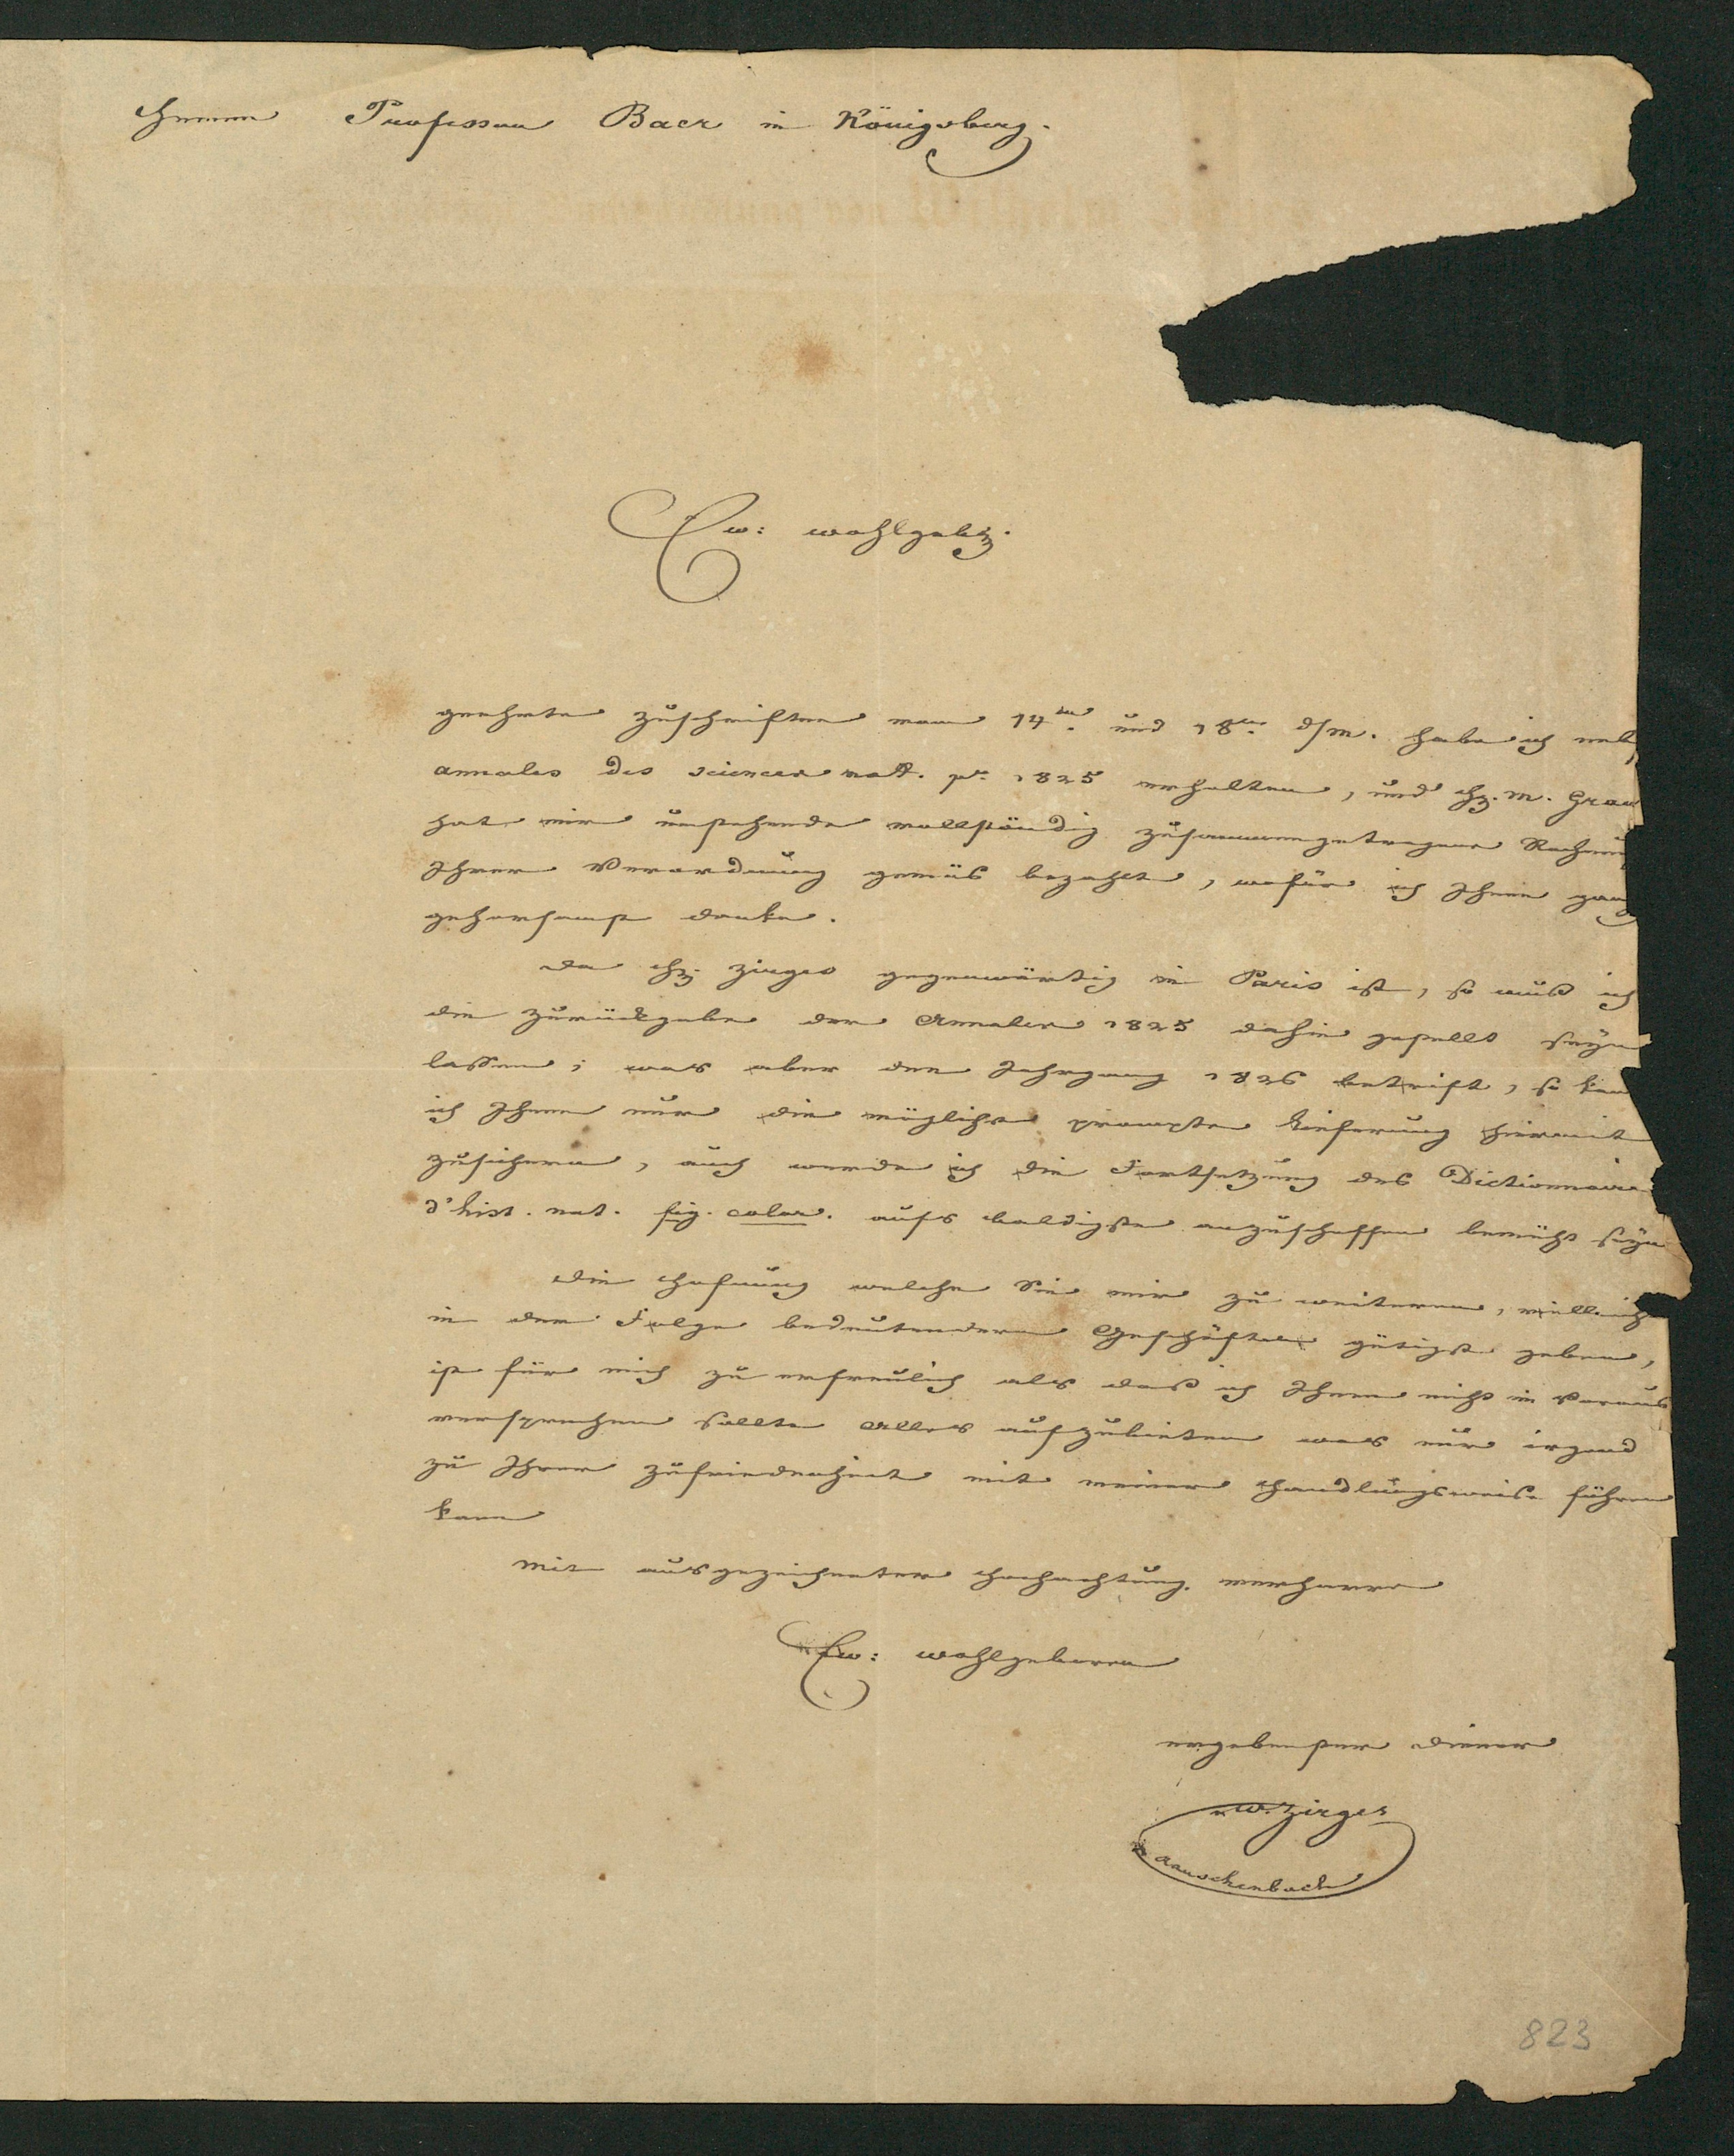 Herrn Professor Baer in Königsberg.
Ew: Wohlgeb.
geehrte Zuschriften vom 14ten und 18ten d/M. habe ich neb
annales des sciences natt. pr. 1825 erhalten, und Hr. M.
hat mir umstehende vollständig zusammengetragene Rechnung
Ihrer Verordnung gemäs bezahlt, wofür ich Ihnen ganz
gehorsamst danke.
Da Hr. Zirges gegenwärtig in Paris ist, so muß ich
die Zurückgabe der Annalen 1825 dahin gestellt seyn
lassen; was aber den Jahrgang 1826 betrift, so kan
ich Ihnen nur die möglichst prompte Lieferung hiermit
zusichern, auch werde ich die Fortsetzung des Dictionnaire
d'hist. nat. fig. color. aufs baldigste anzuschaffen bemüht seyn
Die Hofnung welche Sie mir zu weiteren, vielleicht
in der Folge bedeutendern Geschäften gütigst geben,
ist für mich zu erfreulich als daß ich Ihnen nicht im Voraus
versprechen sollte Alles aufzubieten was nur irgend
zu Ihrer Zufriedenheit mit meiner Handlungsweise führen
kann
Mit ausgezeichneter Hochachtung verharre
Ew: Wohlgeboren
ergebenster Diener
W. Zirges
Rauschenbach
823